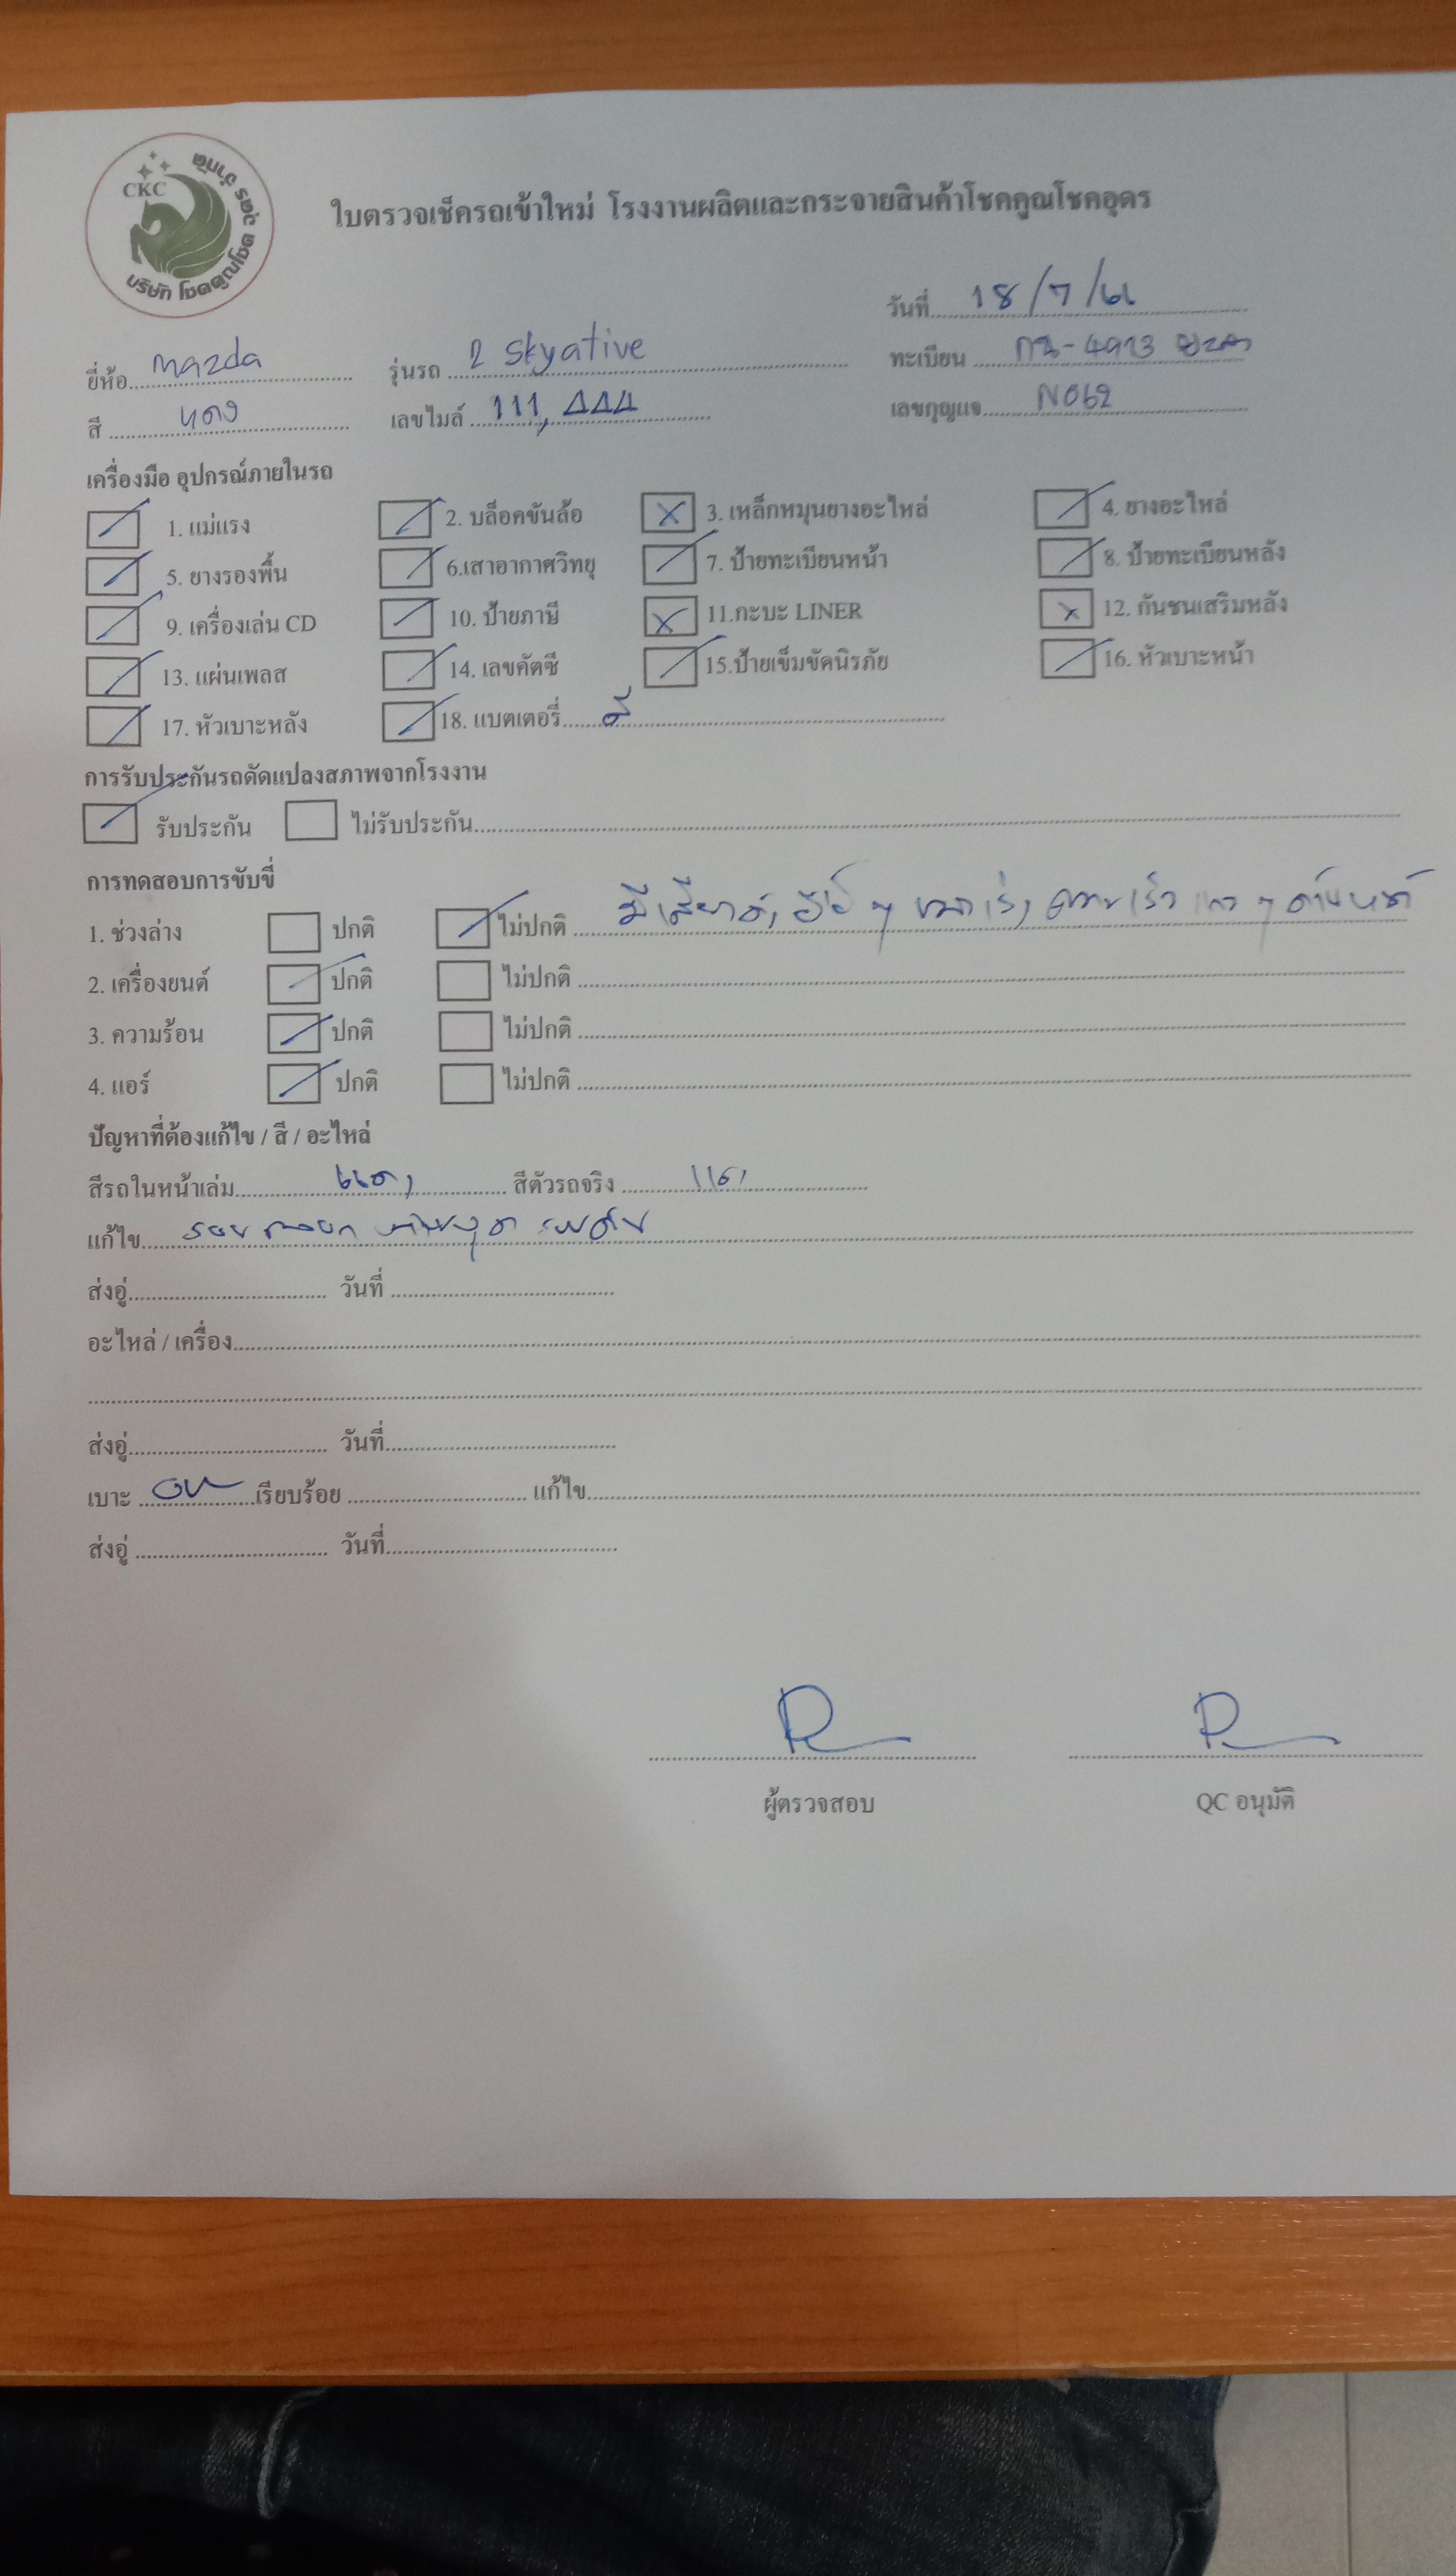 CKC
บริษัท โชคคูณโชค อุดร จำกัด
ใบตรวจเช็ครถเข้าใหม่ โรงงานผลิตและกระจายสินค้าโชคคูณโชคอุดร
วันที่ 18/7/61
ยี่ห้อ mazda รุ่นรถ 2 Skyative ทะเบียน 4913
สี แดง เลขไมล์ 111,444 เลขกุญแจ N062
เครื่องมือ อุปกรณ์ภายในรถ
1. แม่แรง 2. บล็อคขันล้อ 3. เหล็กหมุนยางอะไหล่ 4. ยางอะไหล่
5. ยางรองพื้น 6.เสาอากาศวิทยุ 7. ป้ายทะเบียนหน้า 8. ป้ายทะเบียนหลัง
9. เครื่องเล่น CD 10. ป้ายภาษี 11.กะบะ LINER 12. กันชนเสริมหลัง
13. แผ่นเพลส 14. เลขคัตซี 15.ป้ายเข็มขัดนิรภัย 16. หัวเบาะหน้า
17. หัวเบาะหลัง 18. แบตเตอรี่ ดี
การรับประกันรถดัดแปลงสภาพจากโรงงาน
รับประกัน ไม่รับประกัน
การทดสอบการขับขี่
1. ช่วงล่าง ปกติ ไม่ปกติ มีเสียงดัง
2. เครื่องยนต์ ปกติ ไม่ปกติ
3. ความร้อน ปกติ ไม่ปกติ
4. แอร์ ปกติ ไม่ปกติ
ปัญหาที่ต้องแก้ไข / สี / อะไหล่
สีรถในหน้าเล่ม แดง สีตัวรถจริง แดง
แก้ไข รอบคัน
ส่งอู่ วันที่
อะไหล่ / เครื่อง
ส่งอู่ วันที่
เบาะ เรียบร้อย แก้ไข
ส่งอู่ วันที่
ผู้ตรวจสอบ QC อนุมัติ